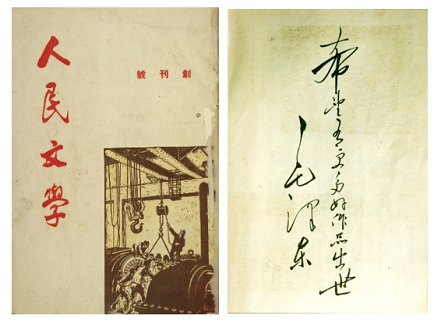 人民文學
創刊號
希望有更多好作品出世
毛澤东